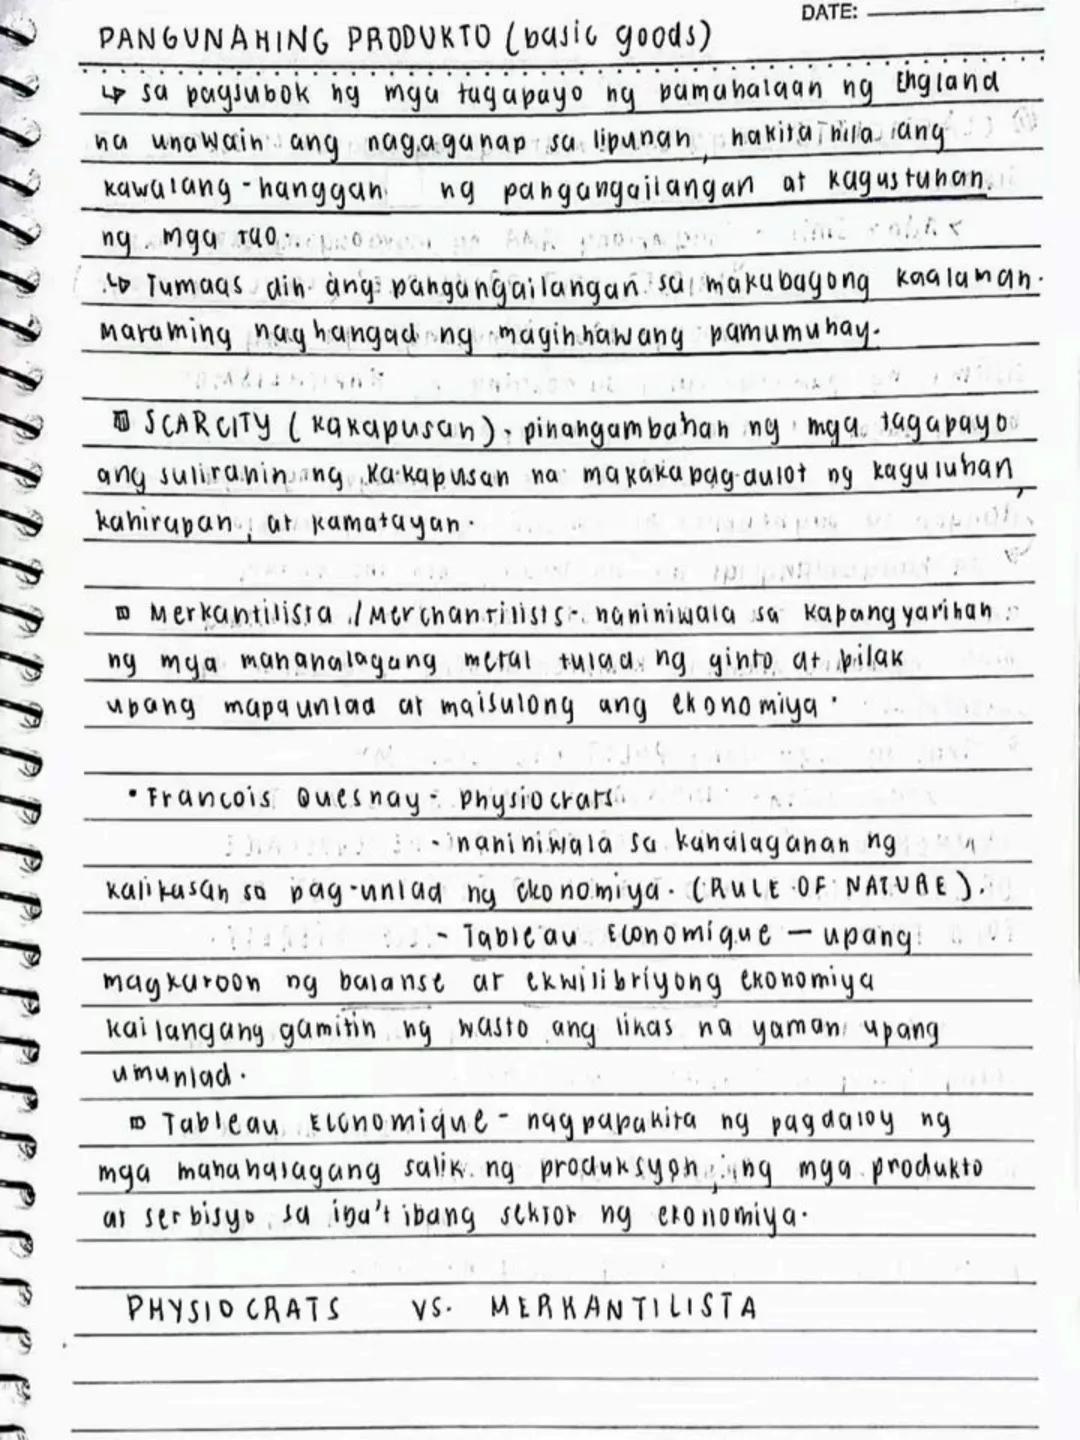 DATE:
PANGUNAHING PRODUKTO (basic goods)
↳ sa pagsubok ng mga tagapayo ng pamahalaan ng England
na unawain ang nagaganap sa lipunan, nakita nila ang
kawalang-hanggan ng pangangailangan at kagustuhan
ng mga tao.
↳ Tumaas din ang pangangailangan sa makabagong kaalaman.
maraming naghangad ng maginhawang pamumuhay.
SCARCITY (kakapusan) - pinangambahan ng mga tagapayo
ang suliranin ng kakapusan na makakapag-dulot ng kaguluhan,
kahirapan, at kamatayan.
Merkantilista / Merchantilists - naniniwala sa kapangyarihan
ng mga mahahalagang metal tulad ng ginto at pilak
upang mapaunlad at maisulong ang ekonomiya.
• Francois Quesnay - physiocrats
- naniniwala sa kahalagahan ng
kalikasan sa pag-unlad ng ekonomiya. (RULE OF NATURE).
- Tableau Economique — upang
magkaroon ng balanse at ekwilibriyong ekonomiya
kailangang gamitin ng wasto ang likas na yaman upang
umunlad.
Tableau Economique - nagpapakita ng pagdaloy ng
mga mahahalagang salik ng produksyon, ng mga produkto
at serbisyo sa iba't ibang sektor ng ekonomiya.
PHYSIOCRATS VS. MERKANTILISTA